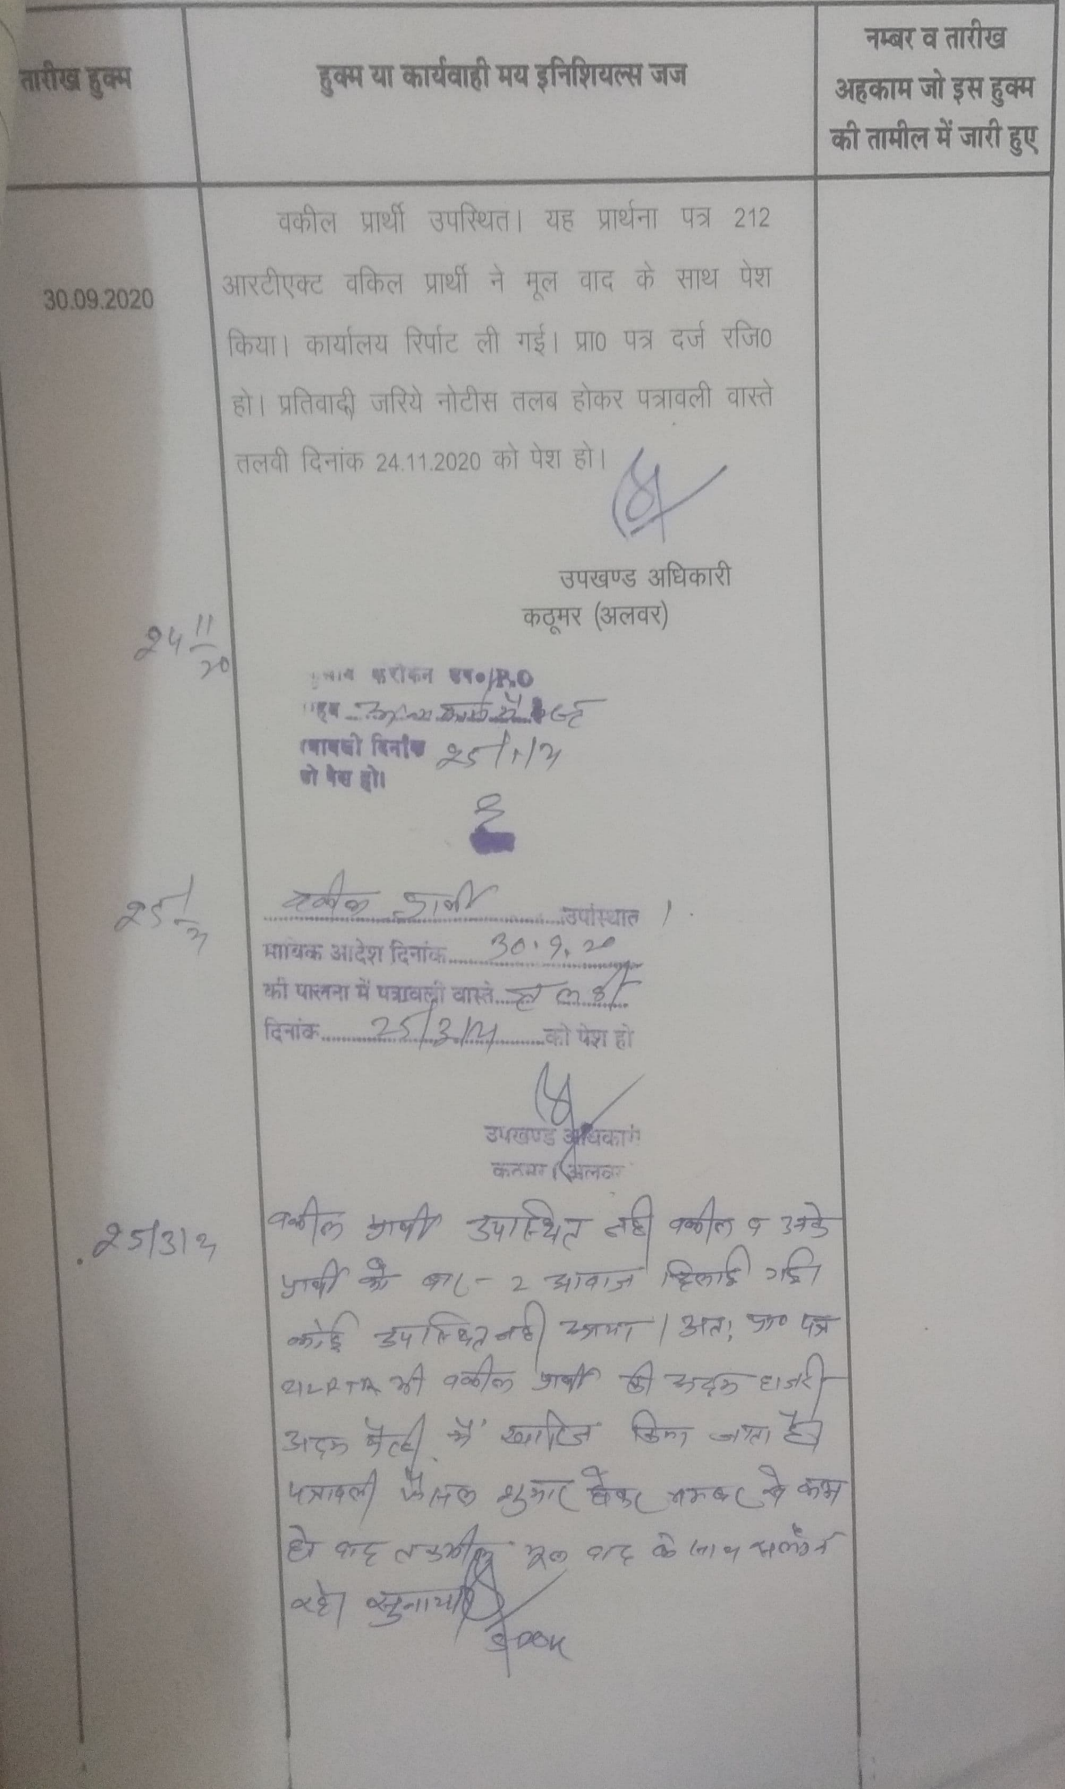 तारीख हुक्म
हुक्म या कार्यवाही मय इनिशियल्स जज
नम्बर व तारीख
अहकाम जो इस हुक्म
की तामील में जारी हुए
30.09.2020
वकील प्रार्थी उपस्थित। यह प्रार्थना पत्र 212
आरटीएक्ट वकिल प्रार्थी ने मूल वाद के साथ पेश
किया। कार्यालय रिर्पाट ली गई। प्रा0 पत्र दर्ज रजि0
हो। प्रतिवादी जरिये नोटीस तलब होकर पत्रावली वास्ते
तलवी दिनांक 24.11.2020 को पेश हो।
उपखण्ड अधिकारी
कठूमर (अलवर)
24 11/20
दिनांक 25/1/21
को पेश हो।
25 1/21
वकील प्रार्थी उपस्थित।
आदेश दिनांक 30.9.20
की पालना में पत्रावली वास्ते तलवी
दिनांक 25/3/21 को पेश हो
उपखण्ड अधिकारी
कठूमर (अलवर
25/3/21
वकील प्रार्थी उपस्थित नही वकील व उनके
प्रार्थी को बार-2 आवाज दिलाई गई।
कोई उपस्थित नही आया। अतः प्रा0 पत्र
212 RTA की वकील प्रार्थी की अदम हाजरी
अदम पैरवी में खारिज किया जाता है।
पत्रावली फैसल शुमार होकर नम्बर से कम
हो वाद तकमील मूल वाद के साथ संलग्न
रहे। सुनाया